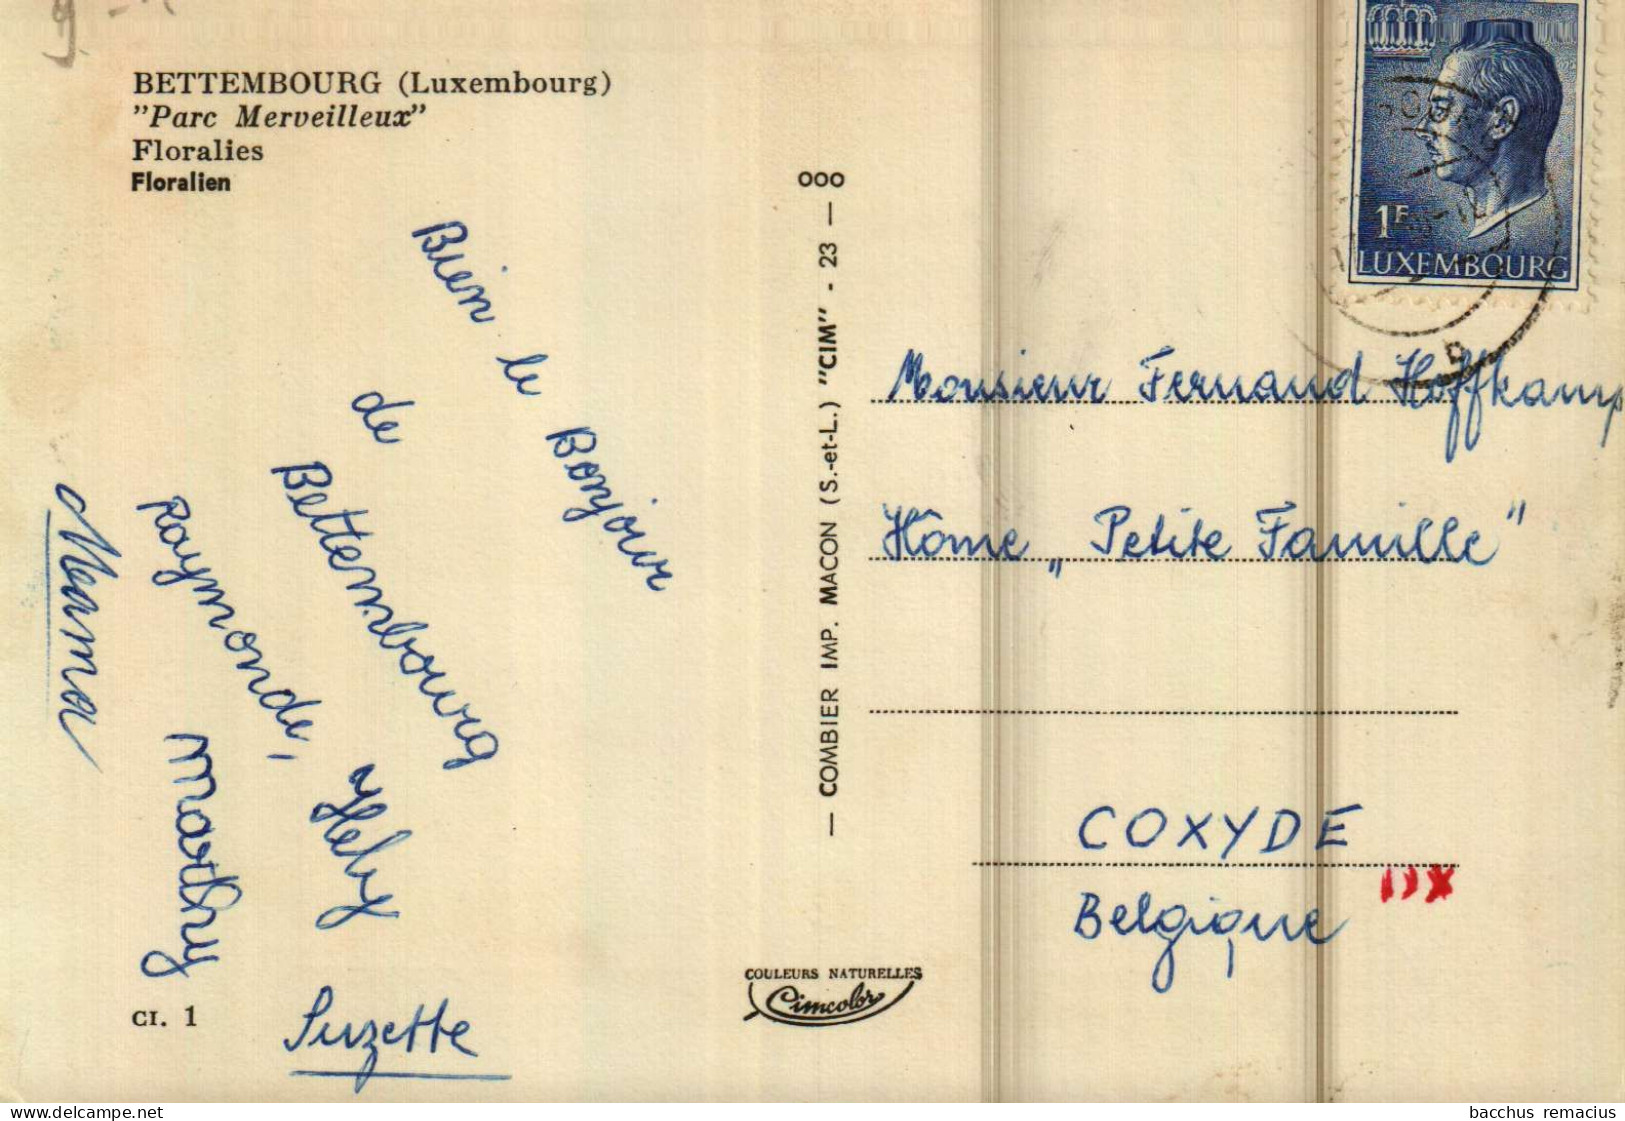 BETTEMBOURG (Luxembourg)
"Parc Merveilleux"
Floralies
Floralien
Bien le Bonjour
de
Bettembourg
Raymonde,
Hely
Marthy
Mama
Suzette
CI. 1
— COMBIER IMP. MACON (S.-et-L.) "CIM" - 23 — 000
COULEURS NATURELLES
Cimcolor
1F
LUXEMBOURG
Monsieur Fernand Hoffkamp
Hôme „Petite Famille"
COXYDE
Belgique
delcampe.net
bacchus remacius